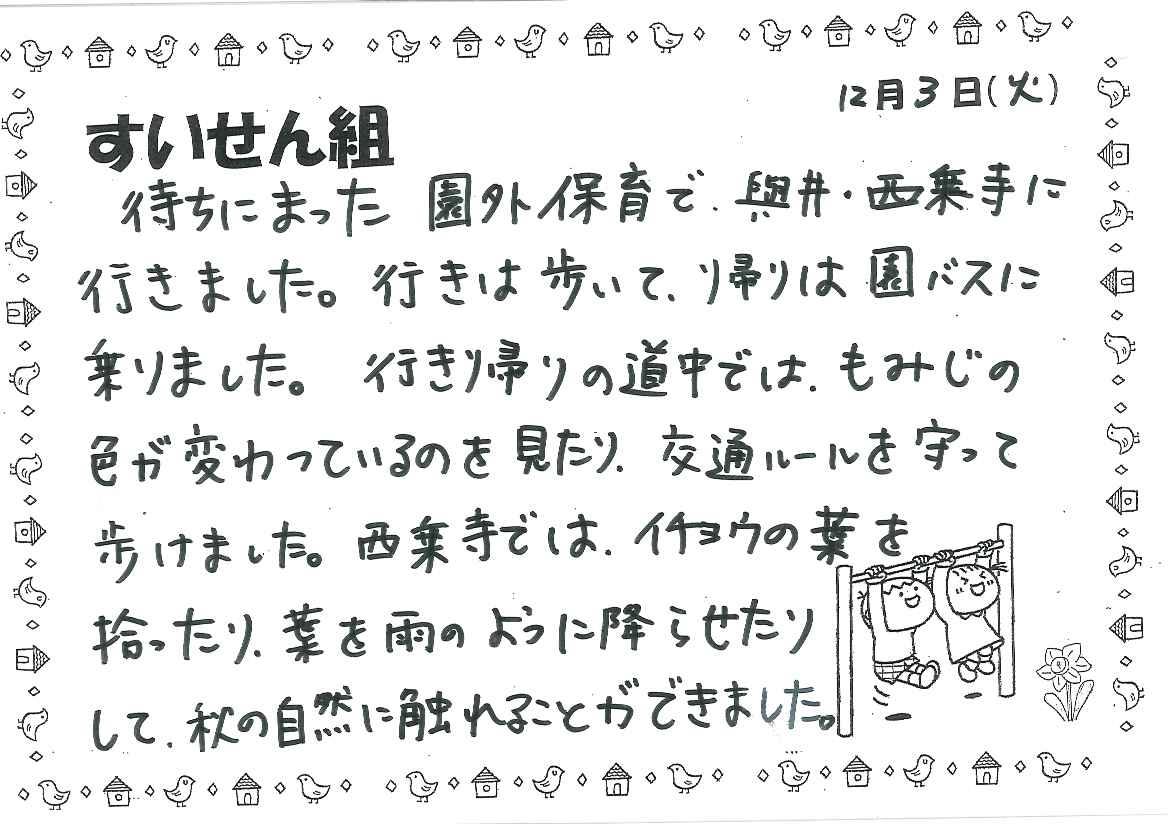 12月3日(火)
すいせん組
待ちにまった 園外保育で、與井・西乗寺に
行きました。行きは歩いて、帰りは園バスに
乗りました。 行き帰りの道中では、もみじの
色が変わっているのを見たり、交通ルールを守って
歩けました。西乗寺では、イチョウの葉を
拾ったり、葉を雨のように降らせたり
して、秋の自然に触れることができました。